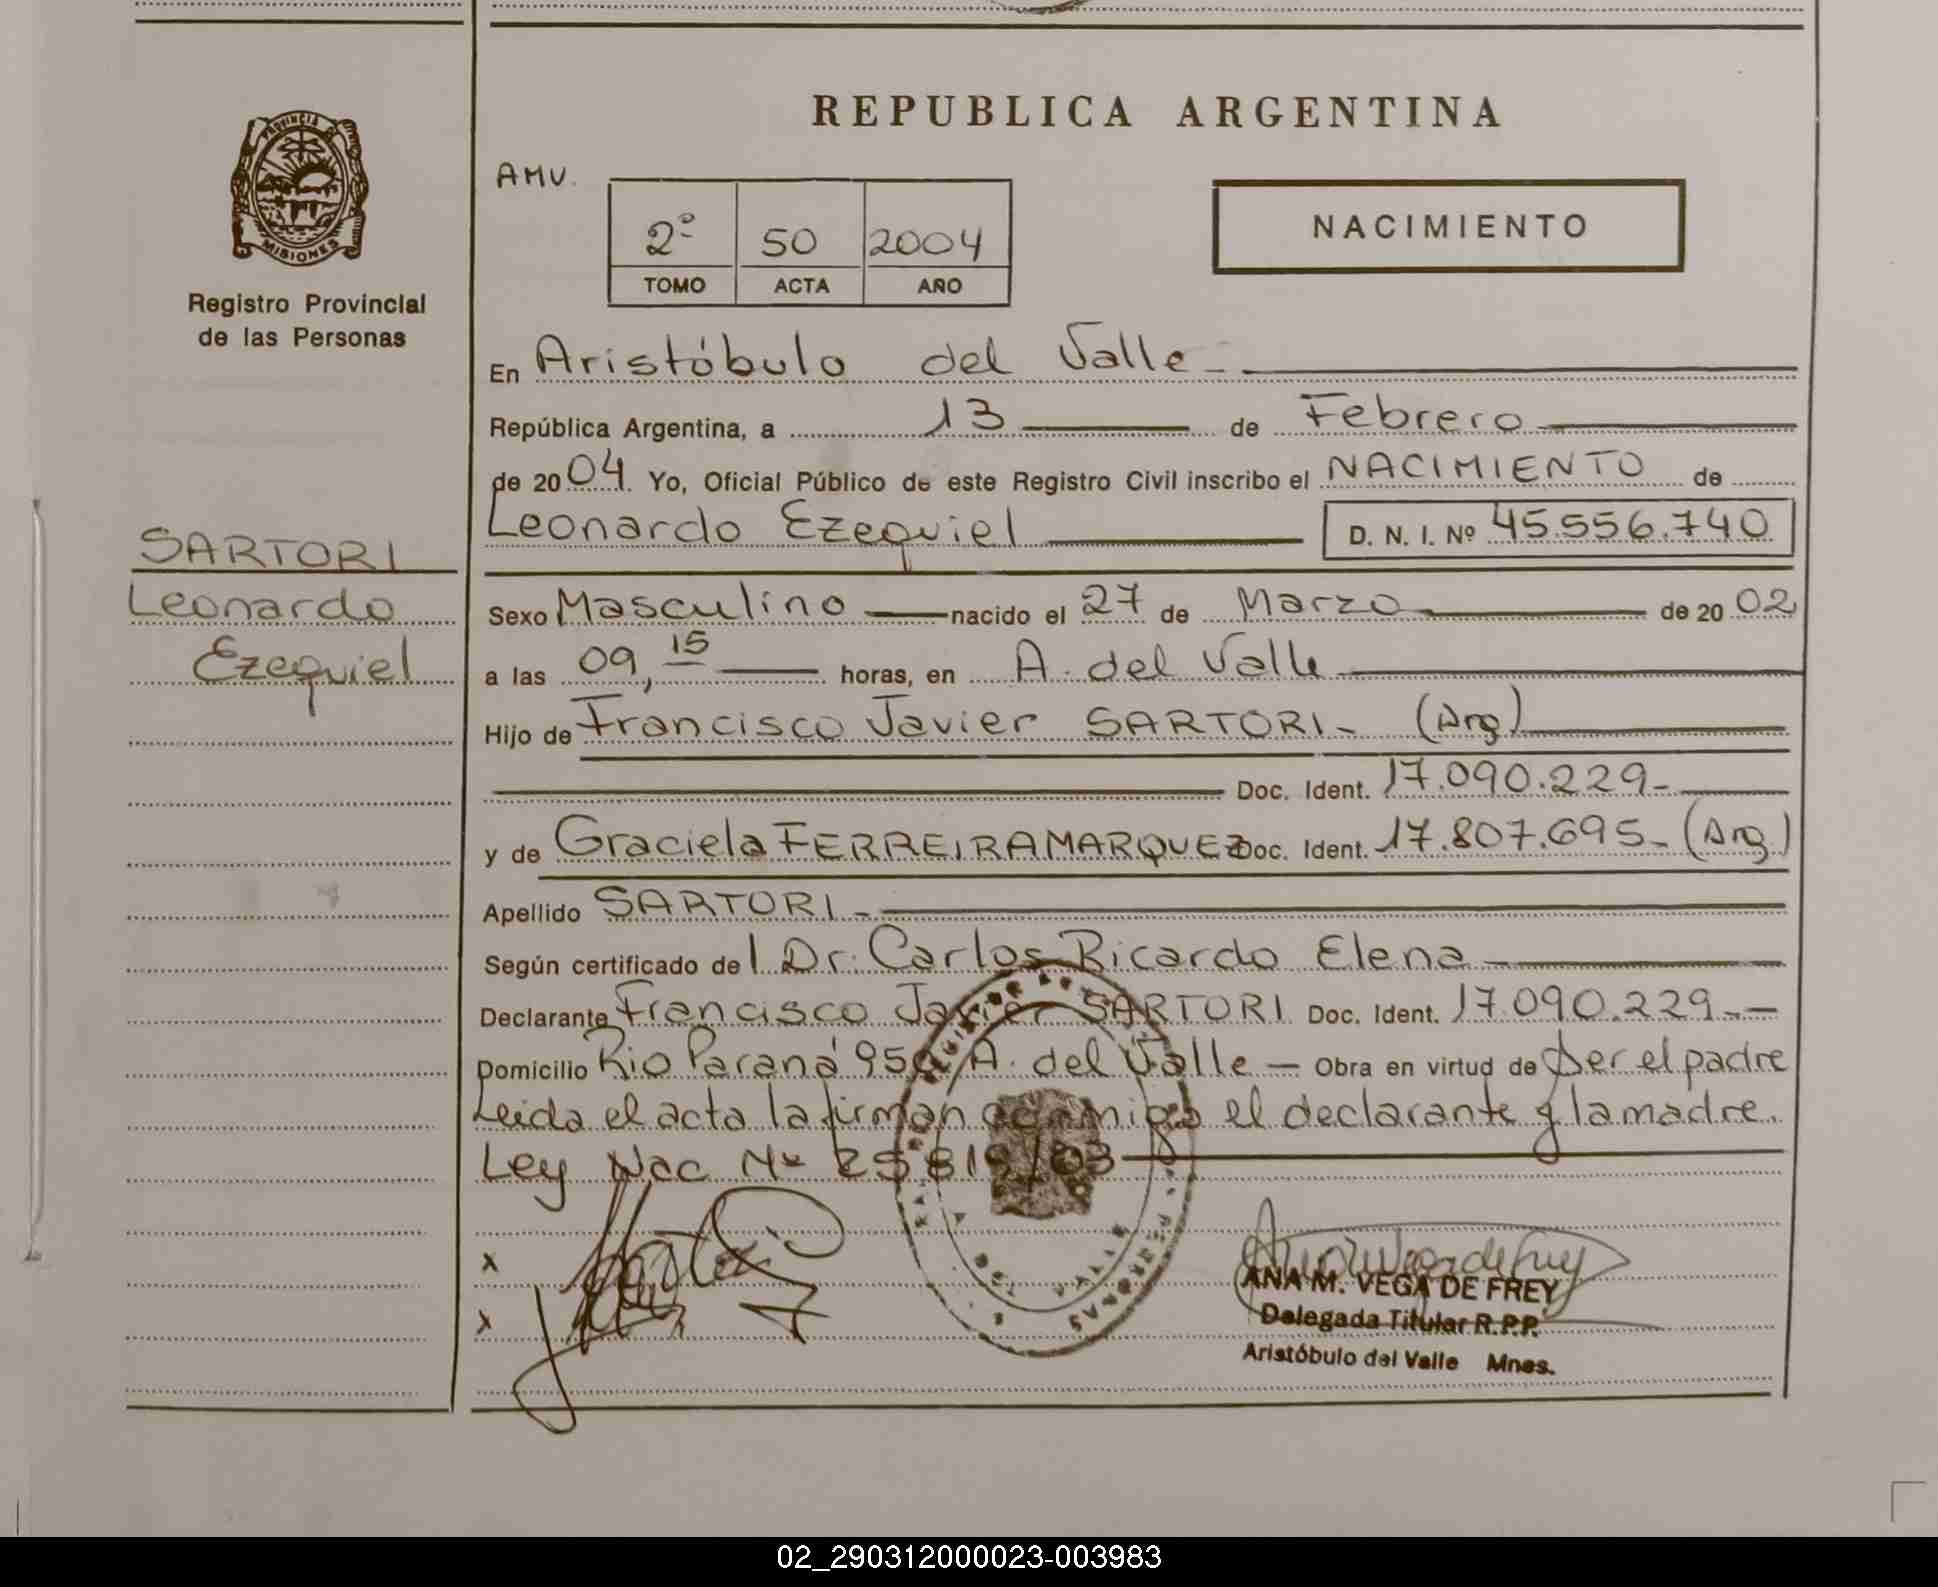 REPUBLICA ARGENTINA
PROVINCIA DE
MISIONES
Registro Provincial
de las Personas
AMV.
2º 50 2004
TOMO ACTA AÑO
NACIMIENTO
En Aristóbulo del Valle -
República Argentina, a 13 de Febrero
de 2004. Yo, Oficial Público de este Registro Civil inscribo el NACIMIENTO de
Leonardo Ezequiel D. N. I. Nº 45.556.740
SARTORI
Leonardo
Ezequiel
Sexo Masculino nacido el 27 de Marzo de 2002
a las 09,15 horas, en A. del Valle
Hijo de Francisco Javier SARTORI - (Arg)
Doc. Ident. 17.090.229-
y de Graciela FERREIRA MARQUEZ Doc. Ident. 17.807.695- (Arg.)
Apellido SARTORI -
Según certificado del Dr. Carlos Ricardo Elena
Declarante Francisco Javier SARTORI Doc. Ident. 17.090.229.-
Domicilio Rio Paraná 950 A. del Valle - Obra en virtud de Ser el padre
Leida el acta la firman conmigo el declarante y la madre.
Ley Nac Nº 25819/03
x
x
ANA M. VEGA DE FREY
Delegada Titular R.P.P.
Aristóbulo del Valle Mnes.
02_290312000023-003983